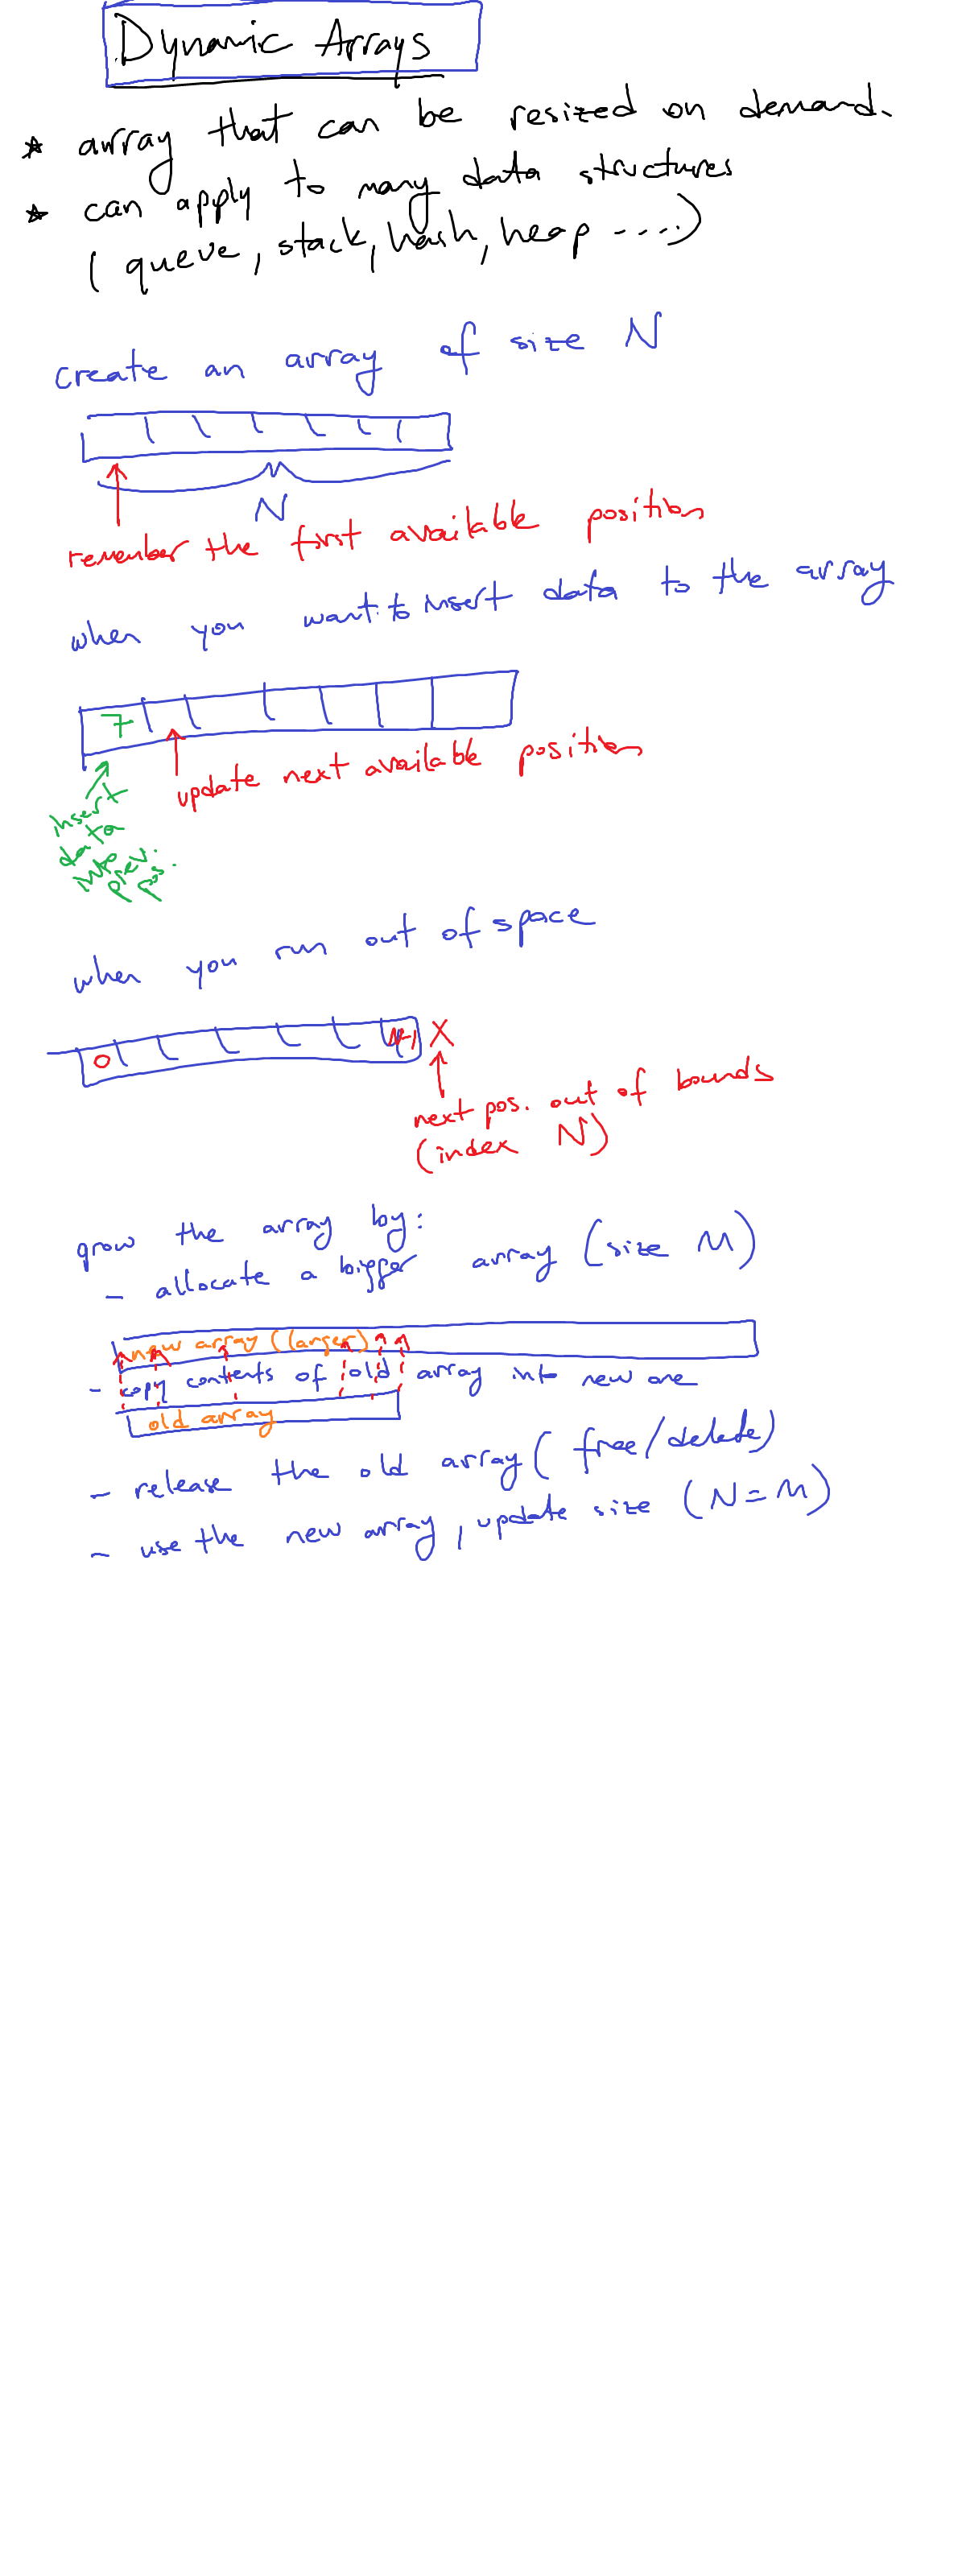 Dynamic Arrays
* array that can be resized on demand.
* can apply to many data structures
( queue, stack, hash, heap ....)
create an array of size N
N
remember the first available position
when you want to insert data to the array
7
update next available position
insert
data
into
prev.
pos.
when you run out of space
0 N-1 X
next pos. out of bounds
(index N)
grow the array by:
- allocate a bigger array (size M)
new array (larger)
- copy contents of old array into new one
old array
- release the old array (free/delete)
- use the new array, update size (N=M)